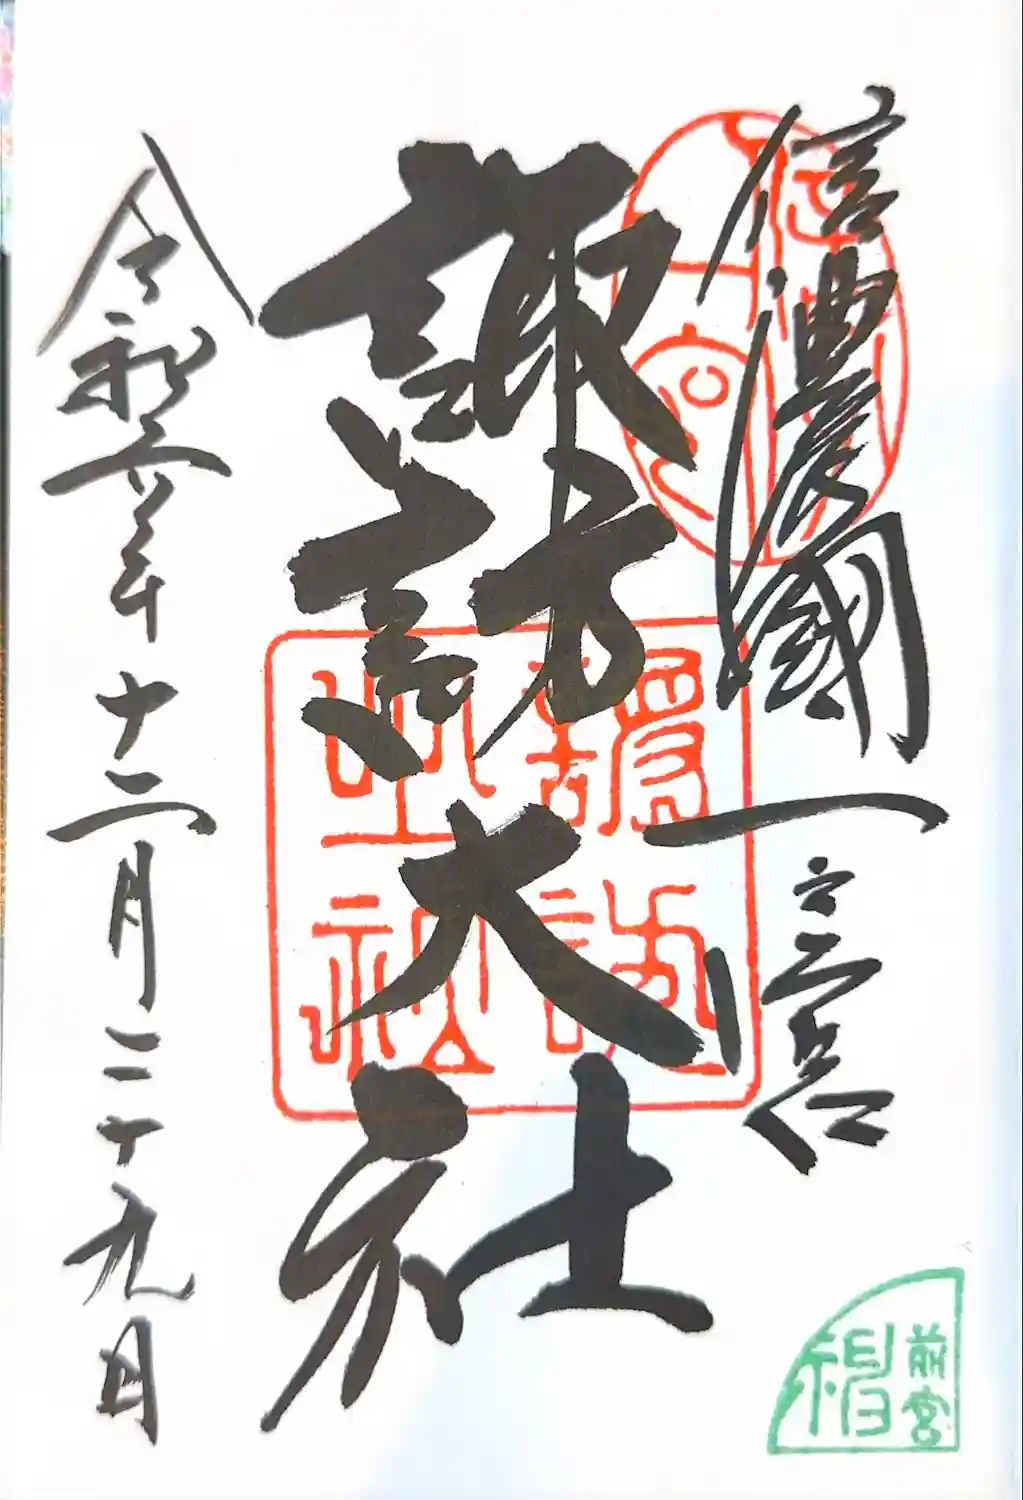 信濃國一之宮
諏訪大社
令和六年十二月二十九日
諏訪大社
前宮